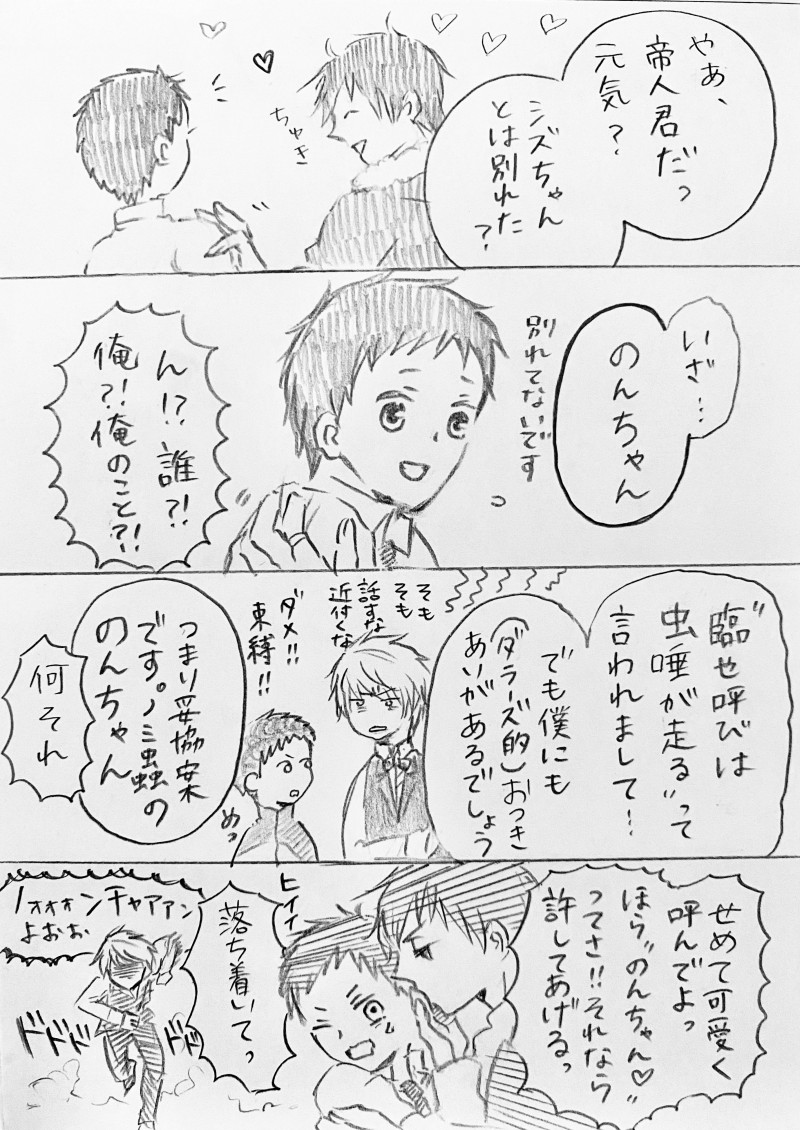 やあ、
帝人君だっ
元気？
シズちゃん
とは別れた
？
ちゅき
いざ…
のんちゃん
別れてないです
ん!?誰?!
俺?!俺のこと?!
"臨也呼びは
虫唾が走る"って
言われまして…
でも僕にも
(ダラーズ的)おつき
あいがあるでしょう
そも
そも
話すな
近付くな
ダメ!!
束縛!!
つまり妥協案
です。ノミ蟲の
のんちゃん
何それ
めっ
せめて可愛く
呼んでよっ
ほら"のんちゃん♡"
ってさ!!それなら
許してあげるっ
ヒイイ
落ち着いてっ
ノォォォンチャアァン
よおぉ
ドドドド
ドド